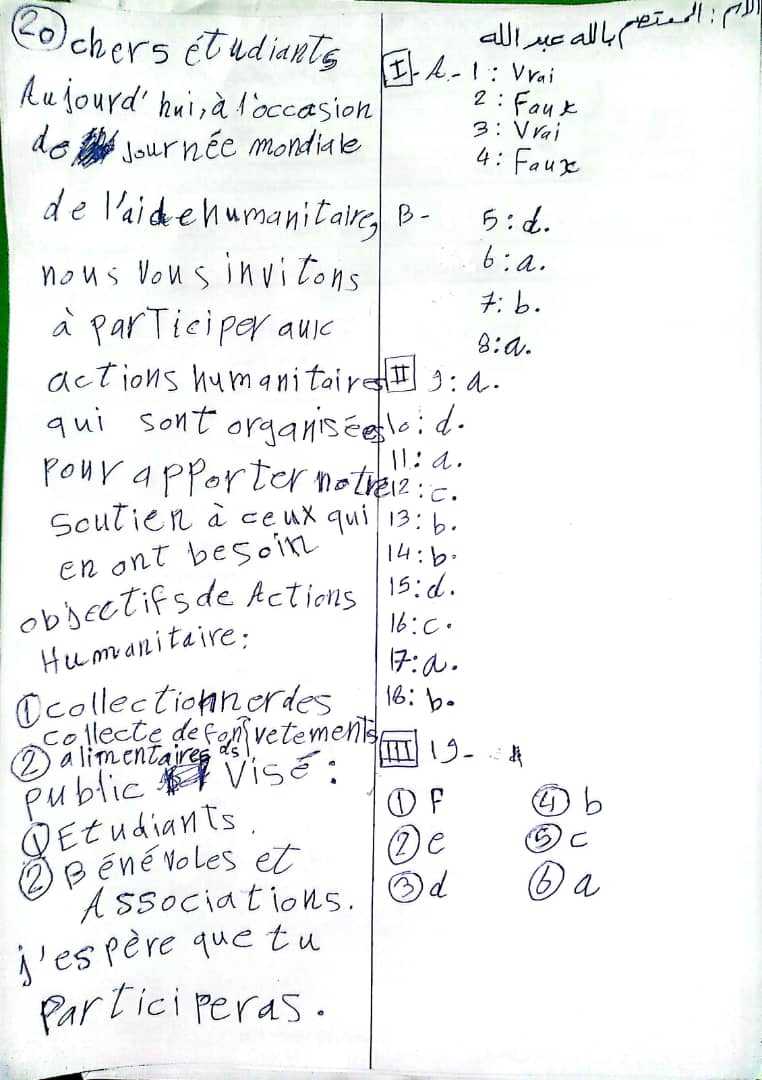 الاسم : المعتصم بالله عبد الله
I - A - 1 : Vrai
2 : Faux
3 : Vrai
4 : Faux
B - 5 : d.
6 : a.
7 : b.
8 : a.
II 9 : a.
10 : d.
11 : a.
12 : c.
13 : b.
14 : b.
15 : d.
16 : c.
17 : a.
18 : b.
III 19 -
① F ④ b
② e ⑤ c
③ d ⑥ a
20 chers étudiants
Aujourd'hui, à l'occasion
de Journée mondiale
de l'aide humanitaire,
nous vous invitons
à participer aux
actions humanitaires
qui sont organisées
pour apporter notre
soutien à ceux qui
en ont besoin
objectifs de Actions
Humanitaire :
① collectionner des
collecte de fons vetements
② alimentaires ds
public Visé :
① Etudiants.
② Bénévoles et
Associations.
j'espère que tu
Participeras.